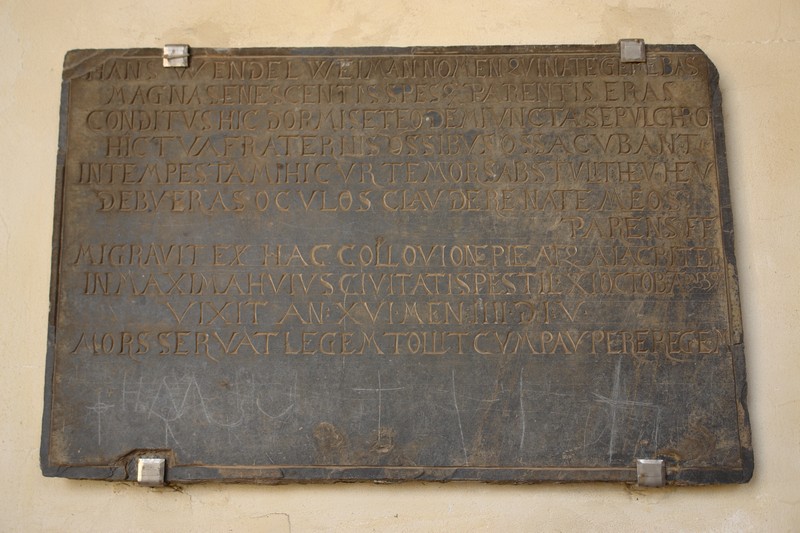 HANS WENDEL WEIMAN NOMEN QVI NATE GEREBAS
MAGNA SENESCENTIS SPES Q PARENTIS ERAS
CONDITVS HIC DORMIS ET EODEM IVNCTA SEPVLCHRO
HIC TVA FRATERNIS OSSIBVS OSSA CVBANT
INTEMPESTA MIHI CVR TE MORS ABSTVLIT HEV HEV
DEBVERAS OCVLOS CLAVDERE NATE MEOS
PARENS FF
MIGRAVIT EX HAC COLLOVIONE PIE AC
IN MAXIMA HVIVS CIVITATIS PESTE XI OCTOB
VIXIT AN: XVI MEN IIII D IV
MORS SERVAT LEGEM TOLLIT CVM PAVPERE REGEM